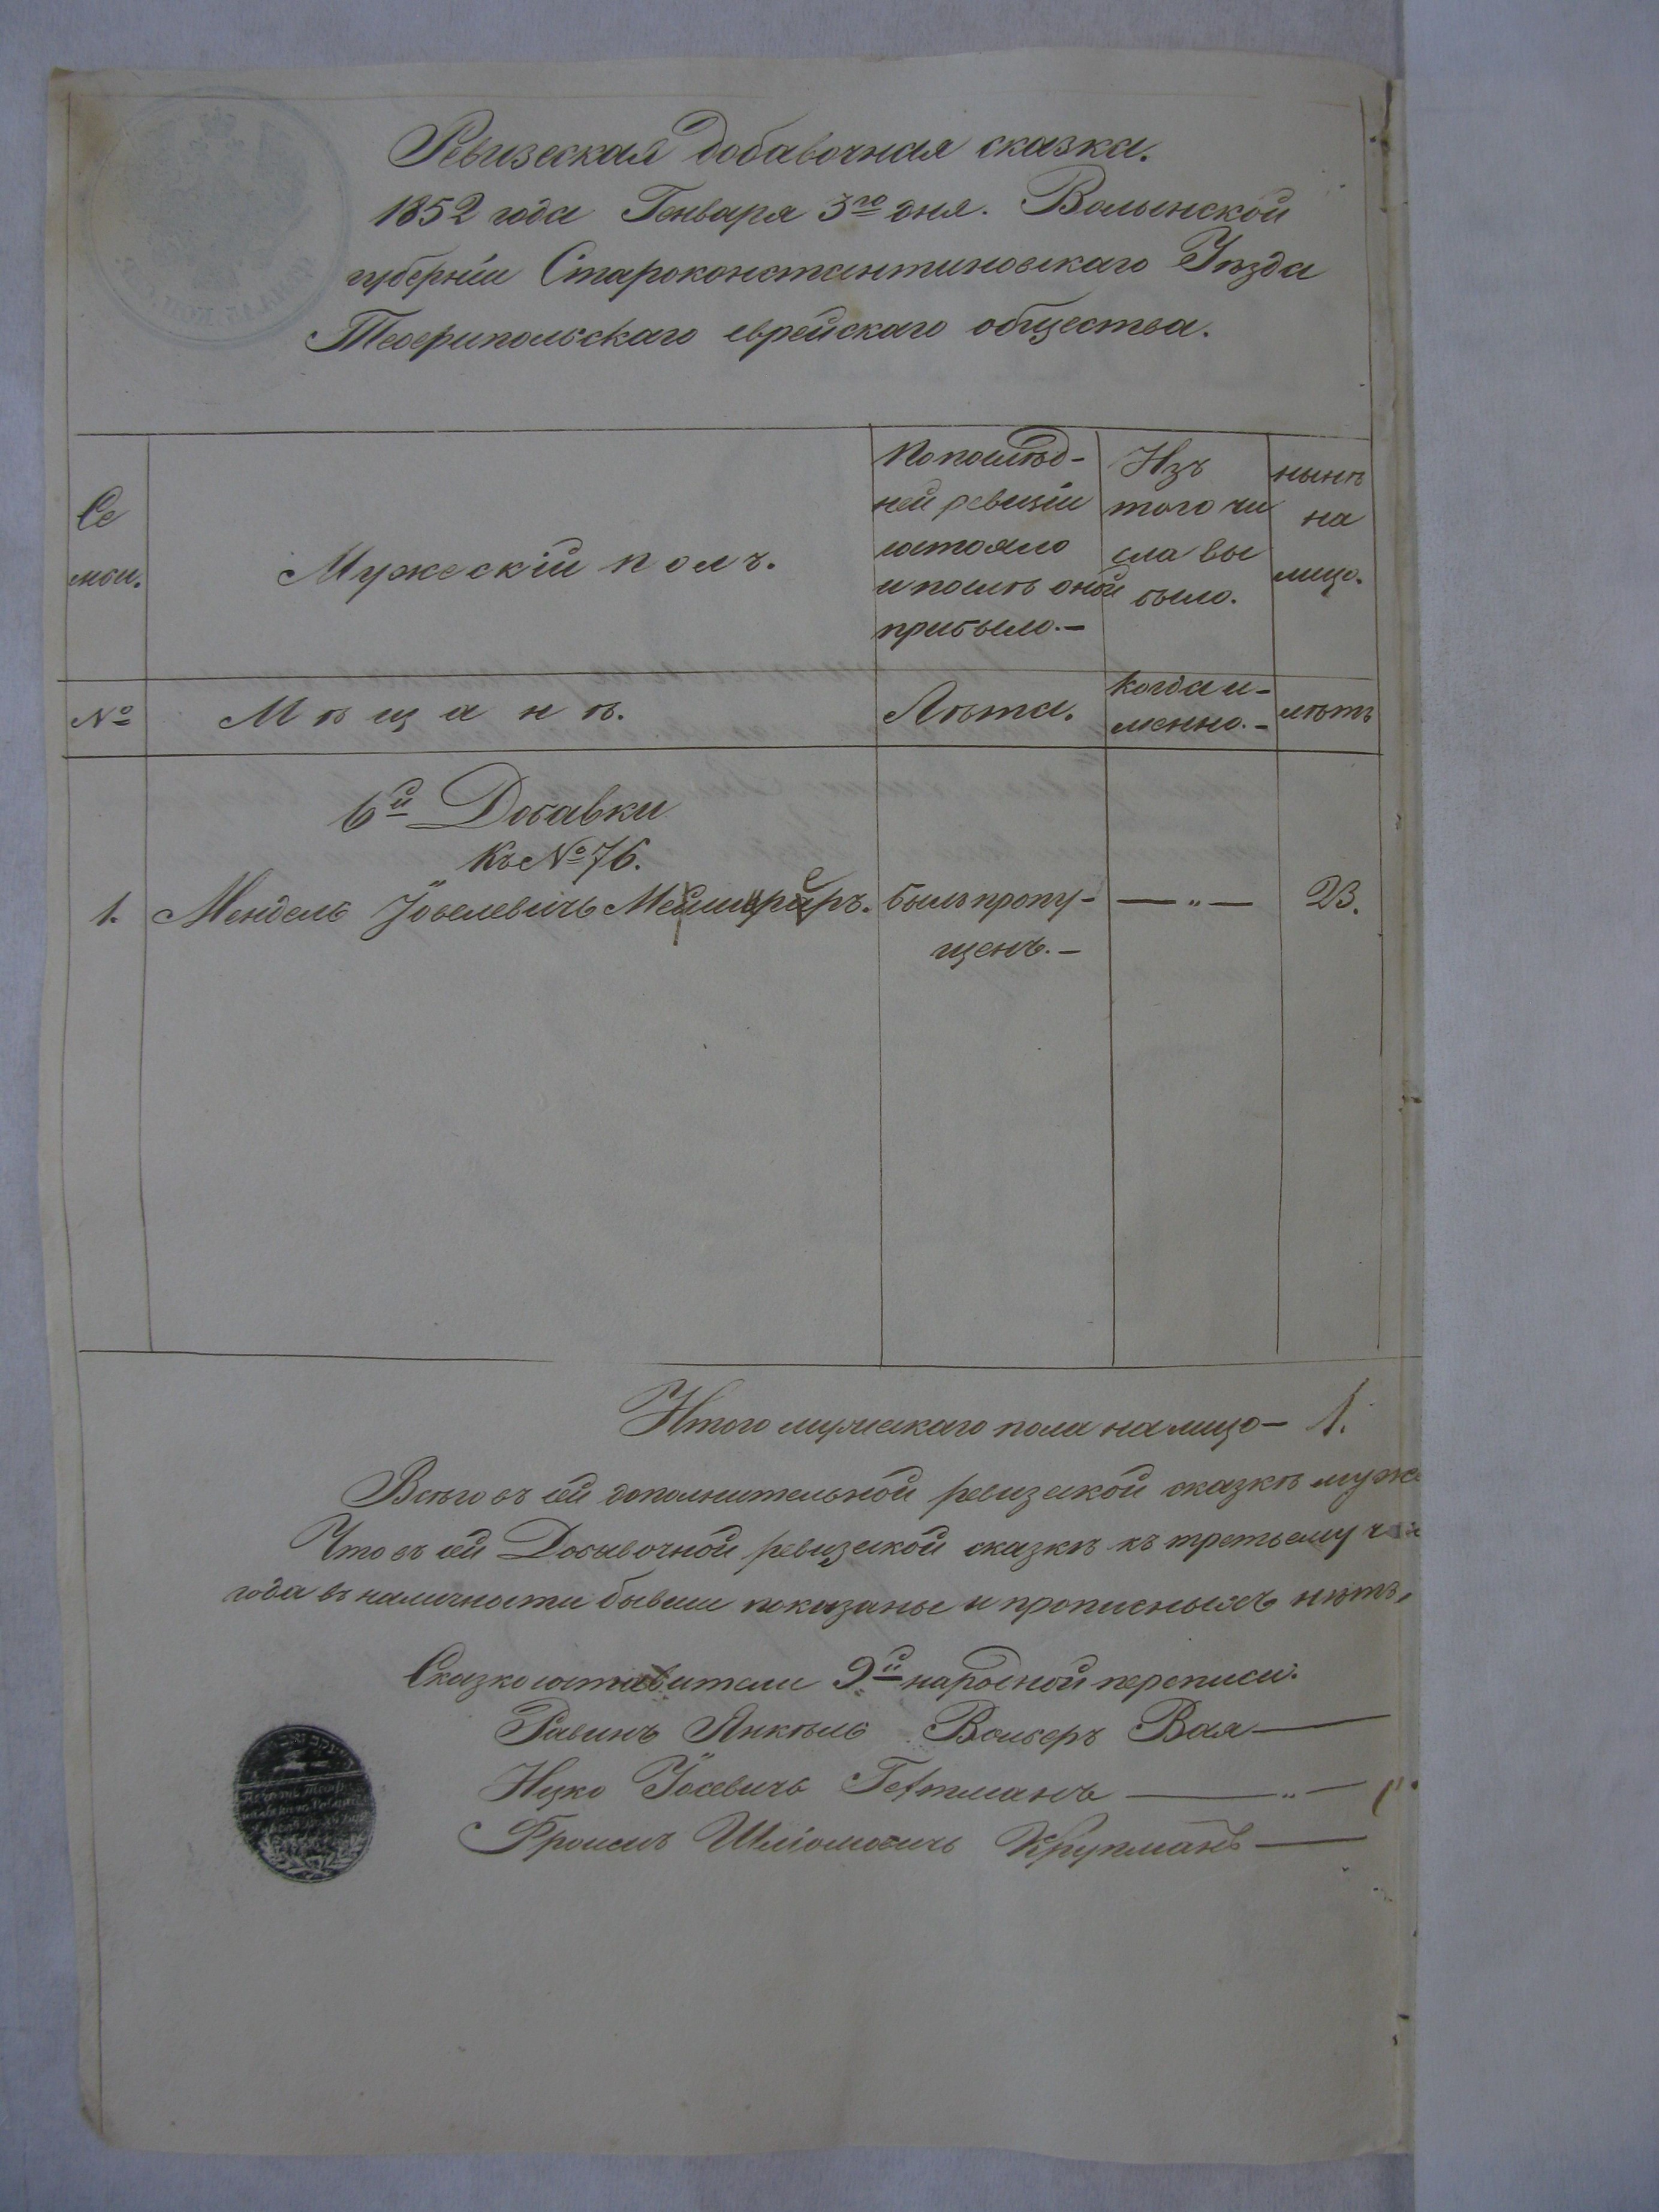 Ревизская добавочная сказка.
1852 года Генваря 3го дня. Волынской
губернии Староконстантиновскаго Уѣзда
Теофипольскаго еврейскаго общества.
Се
мьи.
Мужескій полъ.
По послѣд-
ней ревизіи
состояло
и послѣ оной
прибыло.—
Изъ
того чи
сла вы
было.
нынѣ
на
лицо.
№
Мѣщанѣ.
Лѣта.
Когда и-
менно.-
лѣтъ
6й Добавки
Къ № 76.
1. Мендель былъ пропу- —„— 23.
щенъ.—
Итого мужескаго пола на лицо— 1.
Всего въ сей дополнительной ревизской сказкѣ муже
Что въ сей Добавочной ревизской сказкѣ къ третьему
года въ наличности бывши показаны и прописныхъ нѣтъ,
Сказкосоставители 9й народной переписи.
Равинъ Янкель Вая—
Ицко Іосевичъ Гехтманъ —„—
Фроимъ Шліомовичъ Крупманъ—